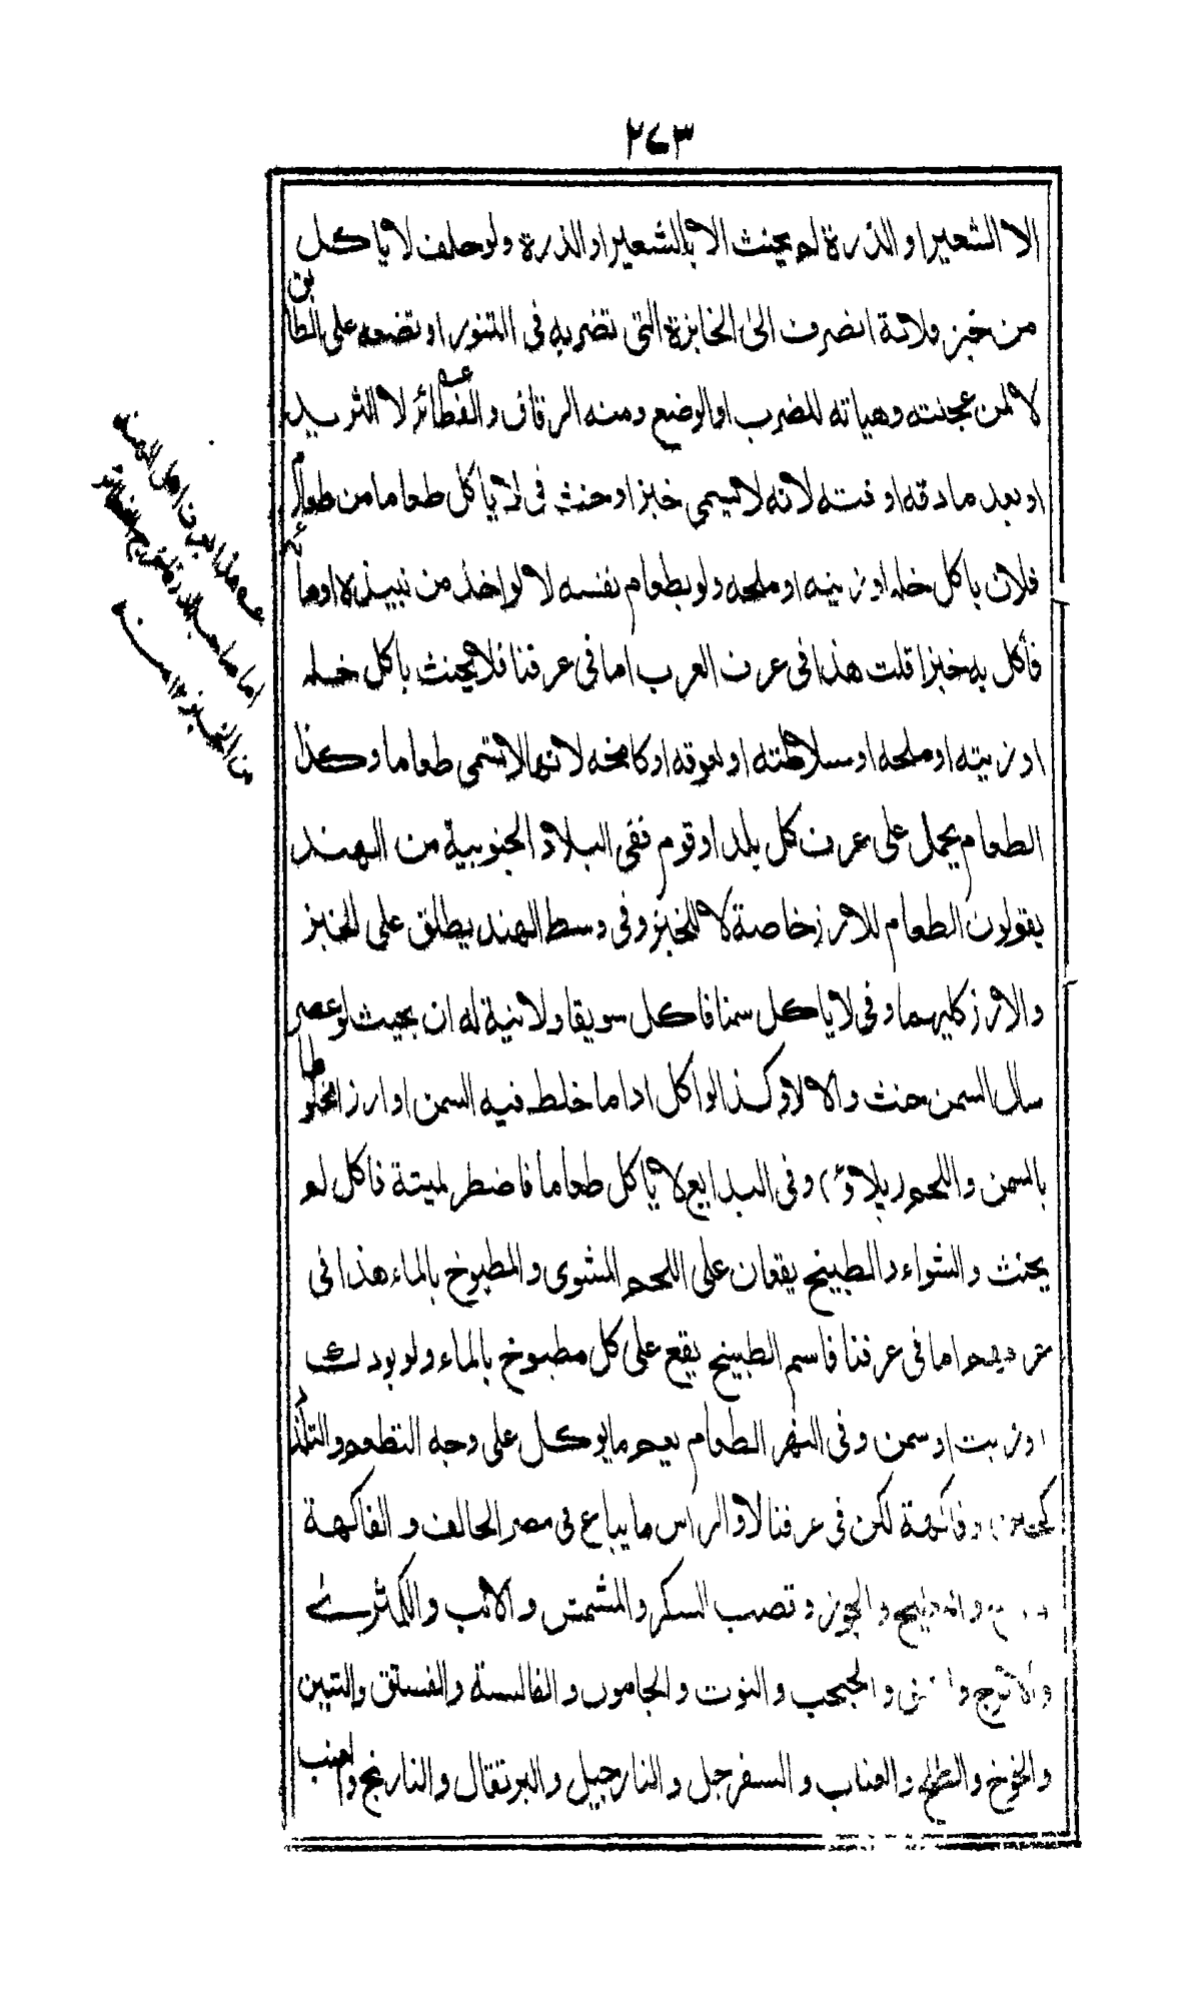 ٢٧٣
الا الشعير او الذرة لم يحنث الا بالشعير او الذرة ولو حلف لا ياكل
من خبز فلانة انصرف الى الخابزة التى تضربه فى التنور او تضعه على الطابق
لا لمن عجنته وهياته للضرب او الوضع ومنه الرقاق والفطائر عه لا الثريد
او بعد ما دقه او فته لانه لا يسمى خبزا وحنث فى لا ياكل طعاما من طعام
فلان باكل خله او زيته او ملحه ولو بطعام نفسه لا لو اخذ من نبيذه او مائه
فأكل به خبزا قلت هذا فى عرف العرب اما فى عرفنا فلا يحنث باكل خله
او زيته او ملحه او سلاطته او لعوقه او كامخه لانها لا تسمى طعاما وكذا
الطعام يحمل على عرف كل بلد او قوم ففى البلاد الجنوبية من الهند
يقولون الطعام للارز خاصة لا للخبز وفى وسط الهند يطلق على الخبز
والارز كليهما وفى لا ياكل سمنا فاكل سويقا ولا نية له ان بحيث لو عصر
سال السمن حنث والا لا وكذا لو اكل اداما خلط فيه السمن او ارزا مخلوطا
بالسمن واللحم (پلاؤ) وفى البدايع لا ياكل طعاما فاضطر لميتة فاكل لم
يحنث والشواء والطبيخ يقعان على اللحم المشوى والمطبوخ بالماء هذا فى
عرفهم اما فى عرفنا فاسم الطبيخ يقع على كل مطبوخ بالماء ولو بودك
او زيت او سمن وفى النهر الطعام يعم ما يوكل على وجه التطعم والتلذذ
كجبن وفاكهة لكن فى عرفنا لا والراس ما يباع فى مصر الحالف والفاكهة
والبطيخ والجوز وقصب السكر والمشمش والانب والكمثرى
والاترج و والحبحب والتوت والجامون والفالسة والفستق والتين
والخوخ والطلح والعناب والسفرجل والنارجيل والبرتقال والنارنج والعنب
عه هذا عرف اهل الهند
اما صاحب الدر فاخرج الفطائر
من الخبز ١٢ منه